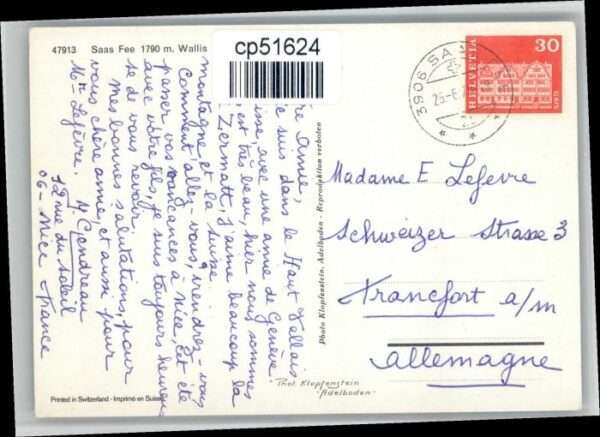 47913 Saas Fee 1790 m. Wallis
cp51624
HELVETIA
30
GAIS
3906 SA
25-6
re amie,
suis dans le Haut Vallais
isse, avec une amie de Genève
est très beau, hier nous sommes
Zermatt, j'aime beaucoup la
montagne et la Suisse.
Comment allez-vous, viendrez-vous
passer vos vacances à Nice, cet été
avec votre fils, je suis toujours heureu
se de vous revoir.
mes bonnes salutations, pour
vous chère amie, et aussi pour
Mr Lefèvre. M. Gendreau
rue du Soleil
06-Nice France
Photo Klopfenstein, Adelboden - Reproduktion verboten
Madame E Lefevre
Schweizer Strasse 3
Francfort a/m
Allemagne
"Phot. Klopfenstein
"Adelboden"
Printed in Switzerland - Imprimé en Suisse